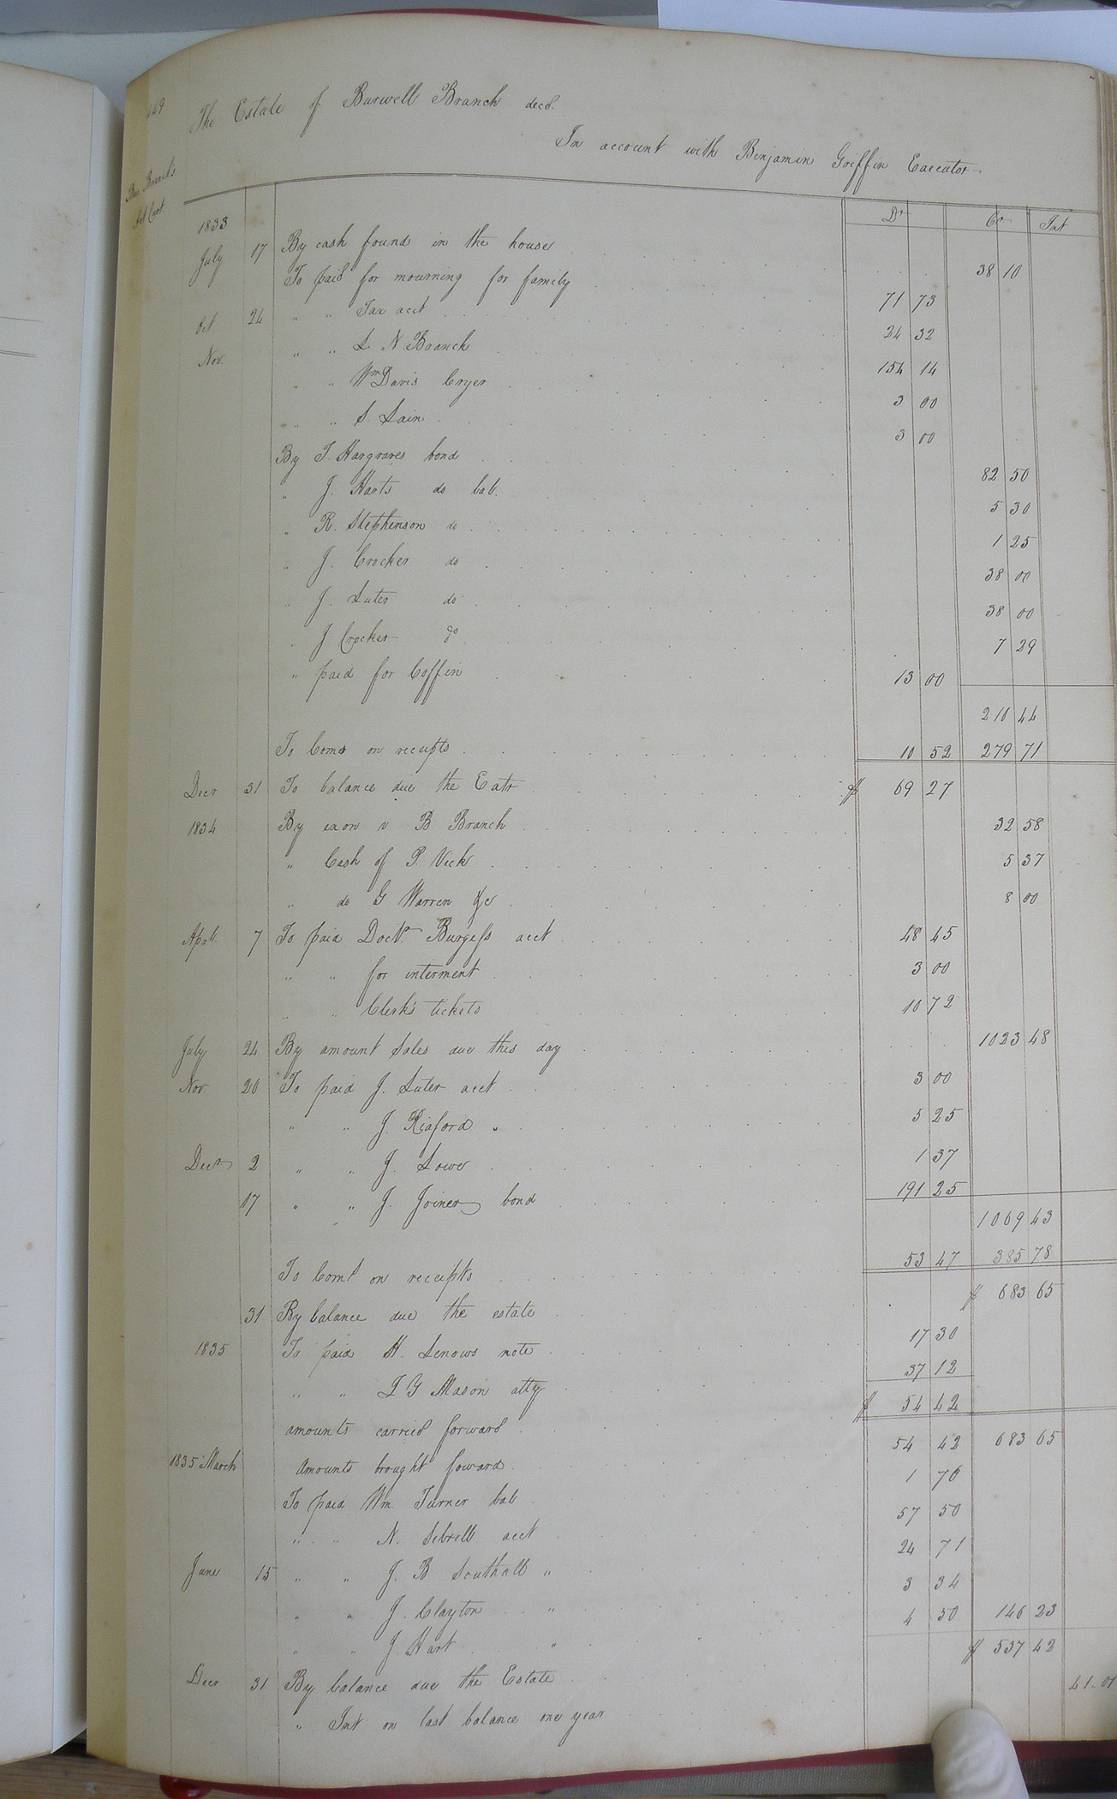 The Estate of Burwell Branch decd.
In account with Benjamin Griffin Executor
Dr Cr Int
1833
July 17 By cash found in the house 38 10
To paid for mourning for family 71 73
Oct 24 " " Tax acct 24 32
Nov. " " L. N. Branch 154 14
" " Wm Davis Cryer 3 00
" " S. Lain 3 00
By T. Hargraves bond 82 50
" J. Harts do bal. 5 30
" R. Stephenson do 1 25
" J. Crocker do 38 00
" J. Luter do 38 00
" J Crocker do 7 29
" paid for Coffin 13 00
210 44
To Coms on receipts 10 52 279 71
Decr 31 To balance due the Extr $ 69 27
1834 By exon v B Branch 32 58
" Cash of P. Vick 5 37
" do G Warren &c 8 00
Apl. 7 To paid Doct. Burgess acct 48 45
" " for interment 3 00
" " Clerk's tickets 10 72
July 24 By amount Sales due this day 1023 48
Nov. 20 To paid J. Luter acct 3 00
" " J. Riaford " 5 25
Decr 2 " " J. Lowe 1 37
17 " " J. Joiner bond 191 25
1069 43
To Comt on receipts 53 47 385 78
31 By balance due the estate $ 683 65
1835 To paid H. Lenows note 17 30
" " L G Mason atty 37 12
$ 54 42
amounts carried forward
1835 March Amounts brought foward 54 42 683 65
To paid Wm Turner bal 1 76
" " N. Sebrell acct 57 50
June 15 " " J. B Southall " 24 71
" " J. Clayton " 3 34
" " J. Hart " 4 50 146 23
Decr 31 By balance due the Estate $ 537 42
" Int on last balance one year 41-01